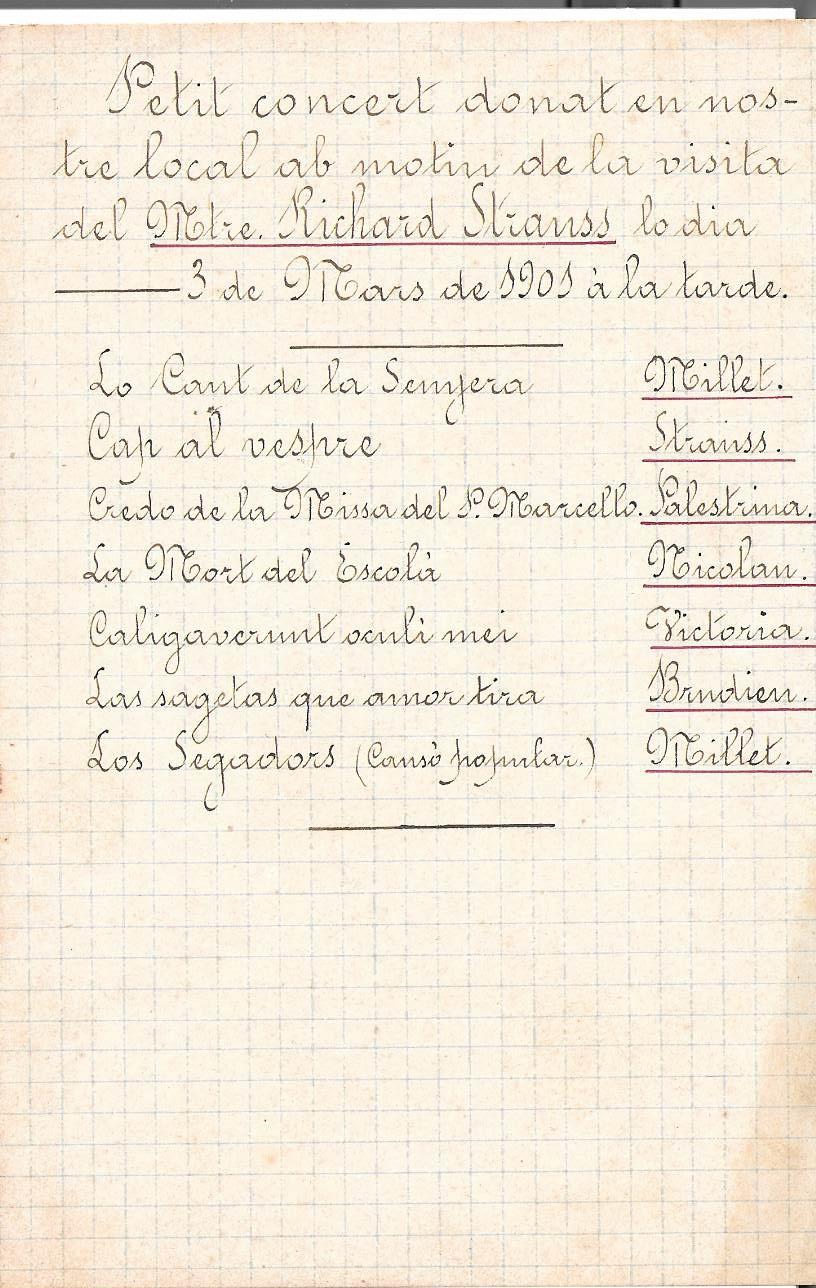 Petit concert donat en nos-
tre local ab motiu de la visita
del Mtre. Richard Strauss lo dia
3 de Mars de 1901 à la tarde.
Lo Cant de la Senyera Millet.
Cap al vespre Strauss.
Credo de la Missa del P. Marcello. Palestrina.
La Mort del Escolà Nicolau.
Caligaverunt oculi mei Victoria.
Las sagetas que amor tira Brudieu.
Los Segadors (Cansó popular.) Millet.